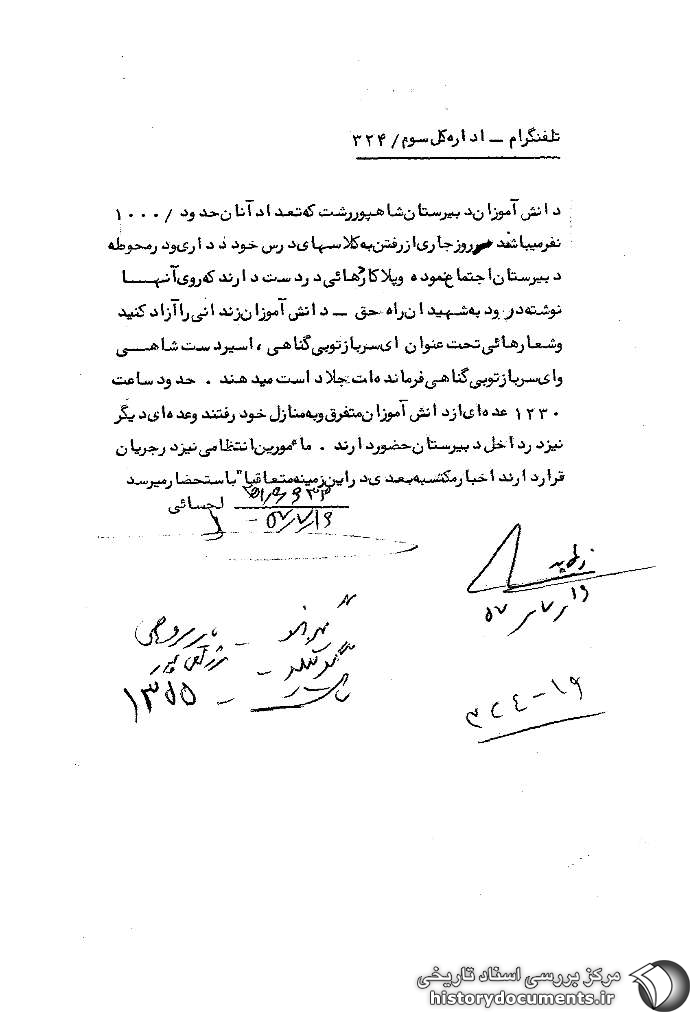 تلفنگرام ــ اداره کل سوم / ۳۲۴
دانش آموزان دبیرستان شاهپور رشت که تعداد آنان حدود / ۱۰۰۰
نفر میباشد روز جاری از رفتن به کلاسهای درس خود دداری و در محوطه
دبیرستان اجتماع نموده و پلاکارهائی در دست دارند که روی آنهـا
نوشته درود به شهیدان راه حق ــ دانش آموزان زندانی را آزاد کنید
وشعارهائی تحت عنوان ای سرباز توبی گناهی ، اسیر دست شاهــی
وای سرباز توبی گناهی فرمانده ات جلاد است میدهند . حدود ساعت
۱۲۳۰ عده ای از دانش آموزان متفرق و به منازل خود رفتند وعده ای دیگر
نیز در داخل دبیرستان حضور دارند . مأمورین انتظامی نیز در جریان
قرار دارند اخبار مکتسبه بعدی در این زمینه متعاقبا" باستحضار میرسد
۵۷/۷/۱۶
۵۷
۱۳۵۵
۳۲۴-۱۶
مرکز بررسی اسناد تاریخی
historydocuments.ir